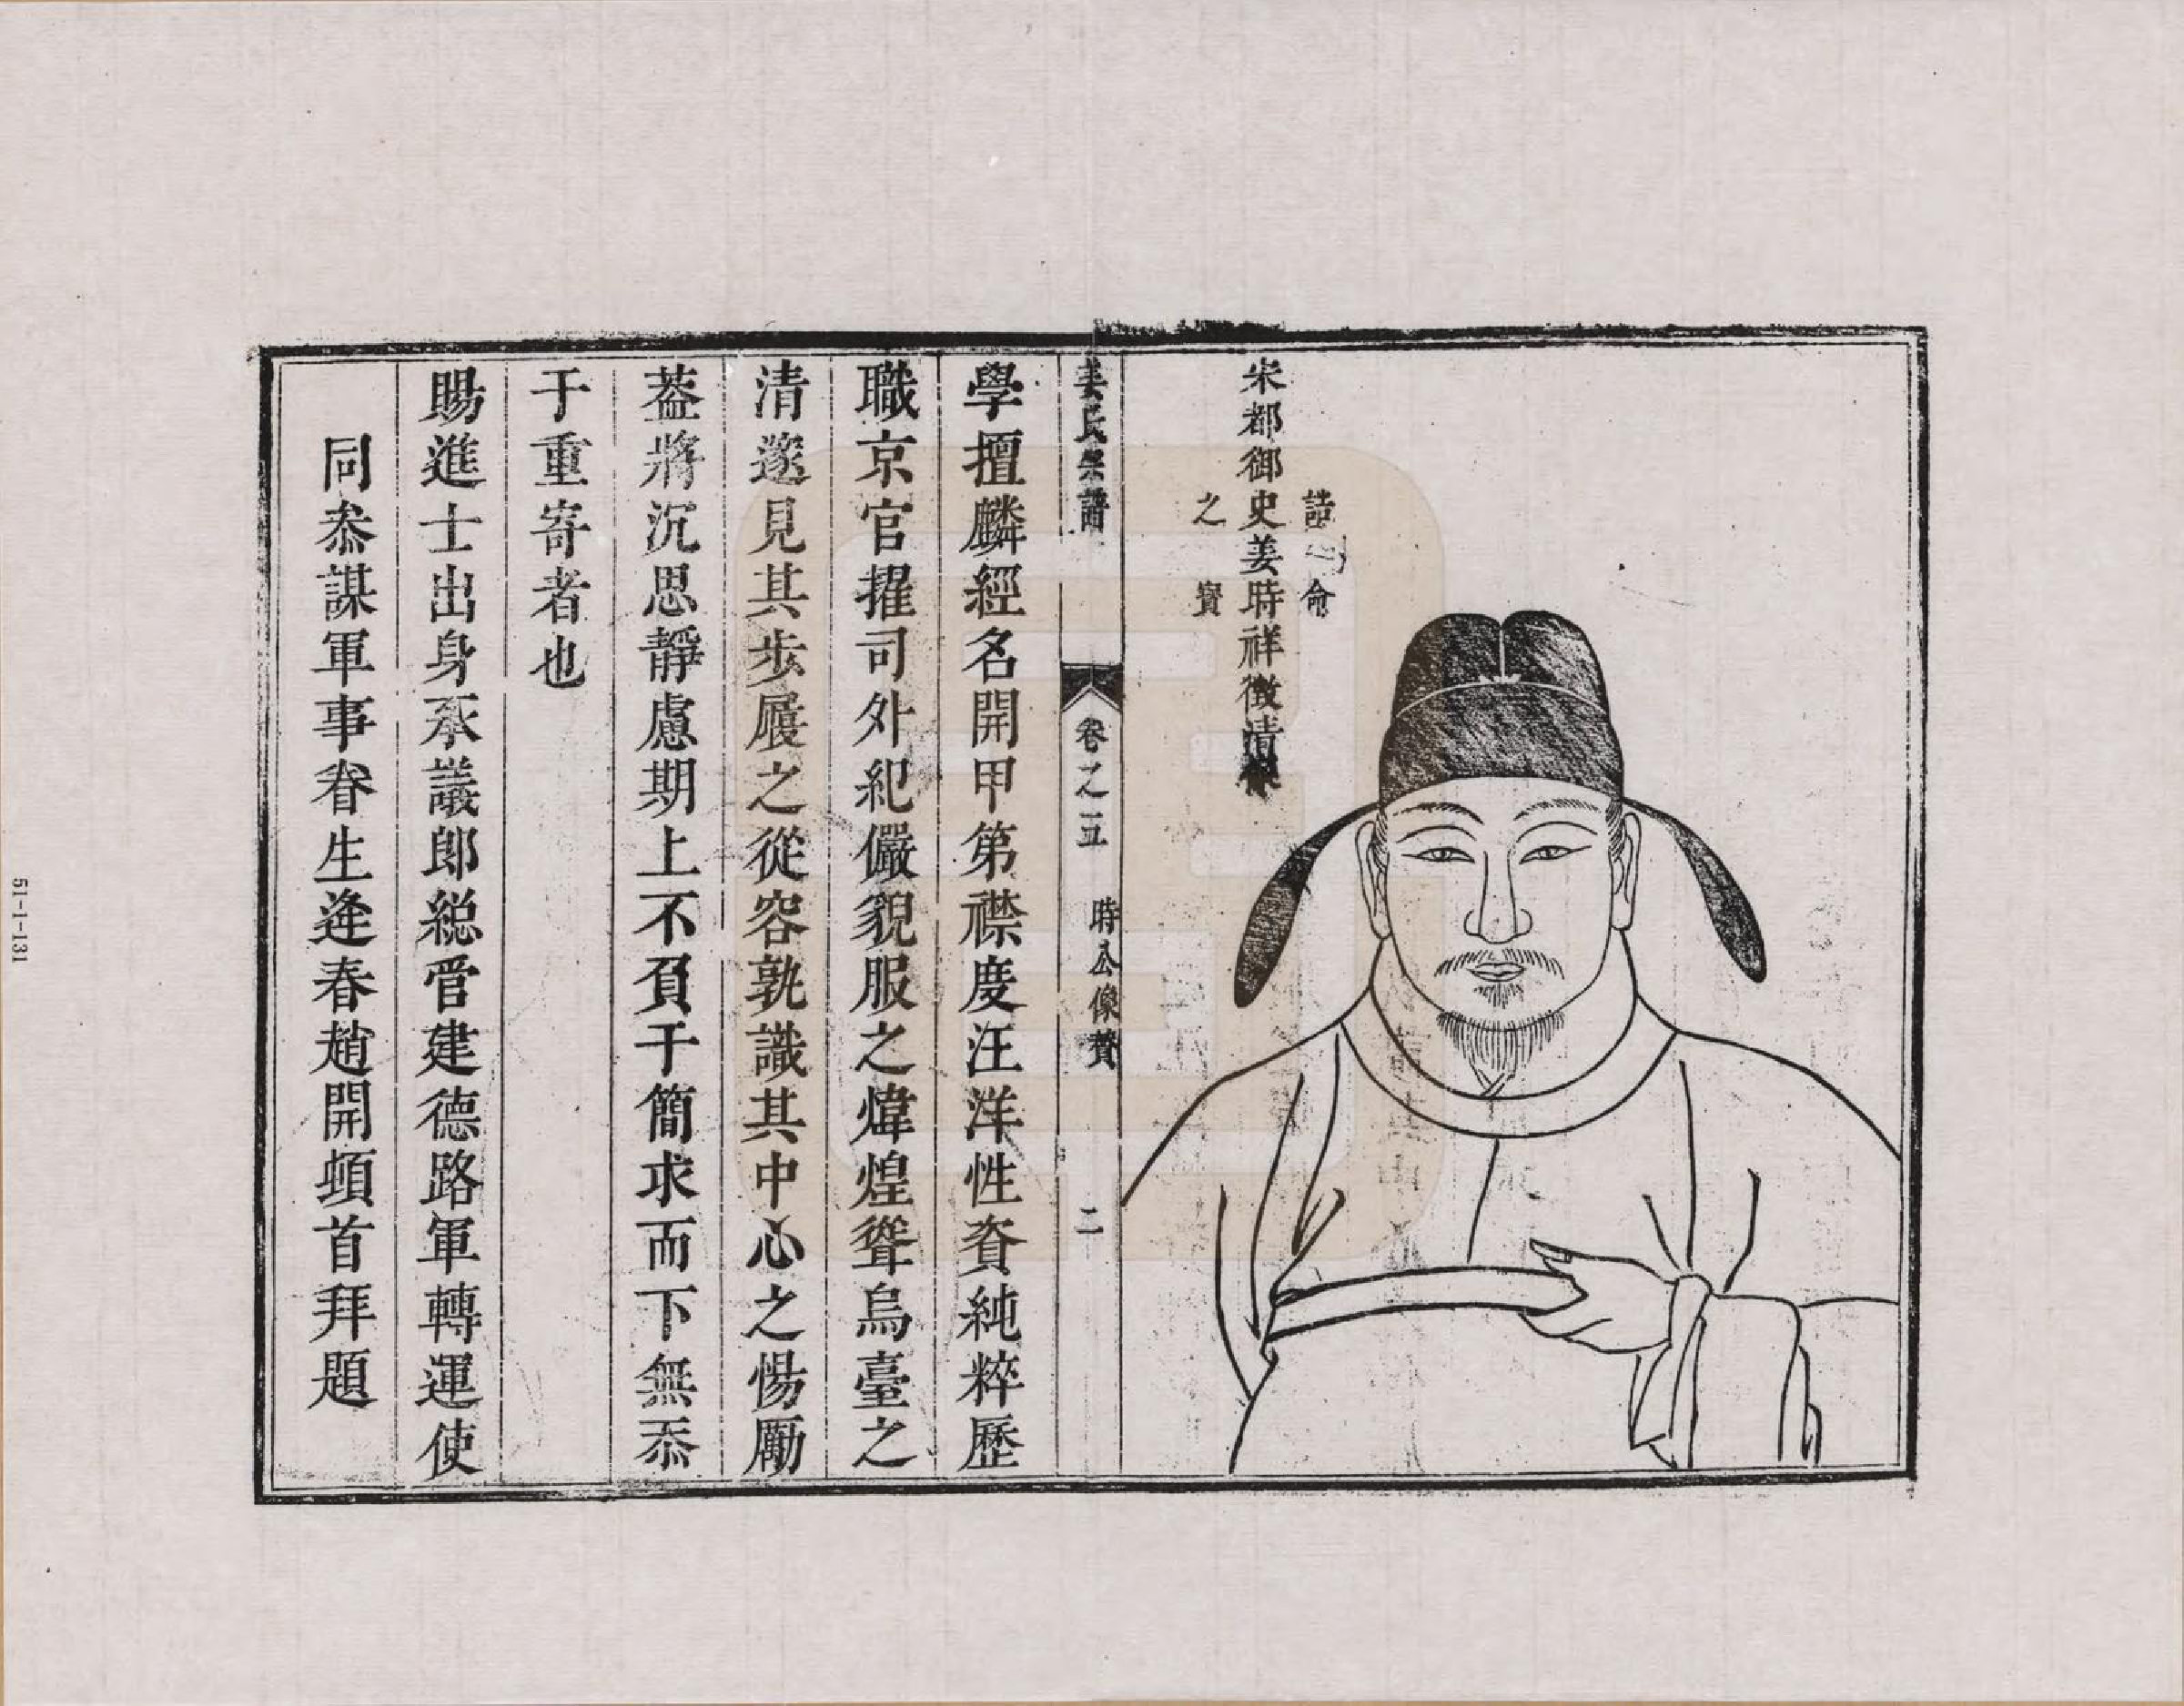 誥命
宋都御史姜時祥徵清像
之寶
姜氏宗譜 卷之五 時公像贊 二
學擅麟經名開甲第襟度汪洋性資純粹歷
職京官擢司外紀儼貌服之煒煌聳烏臺之
清邃見其步履之從容孰識其中心之惕勵
葢將沉思靜慮期上不負于簡求而下無忝
于重寄者也
賜進士出身承議郎総管建德路軍轉運使
同叅謀軍事眷生逄春趙開頓首拜題
51-1-131